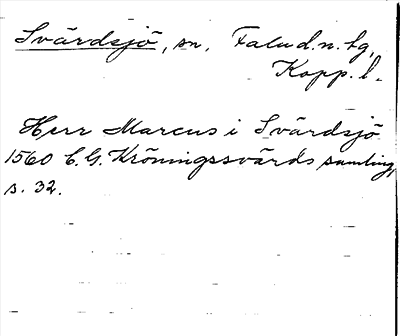 Svärdsjö, sn. Falu d.n. tg,
Kopp. l.
Herr Marcus i Svärdsjö
1560 C.G. Kröningssvärds samling,
s. 32.